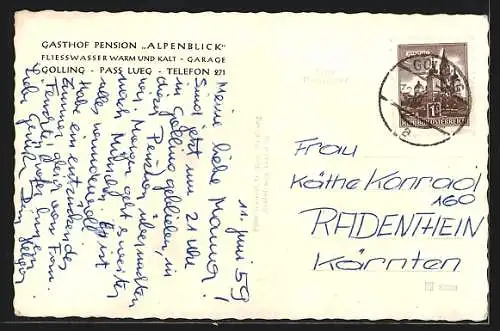 GASTHOF PENSION „ALPENBLICK"
FLIESSWASSER WARM UND KALT - GARAGE
GOLLING - PASS LUEG - TELEFON 271
11. Juni 59
Meine liebe Mamma!
Sind jetzt um 21 Uhr
in Golling geblieben, in
dieser Pension übernachten
wir. Morgen geht's weiter
nach München. Es ist
alles wundervoll.
Habe ein entzückendes
Zimmer, dein von Frau
Liebe Grüße
Helga
Frau
Käthe Konrad
160
RADENTHEIN
Kärnten
GOLLING
1S
REPUBLIK ÖSTERREICH